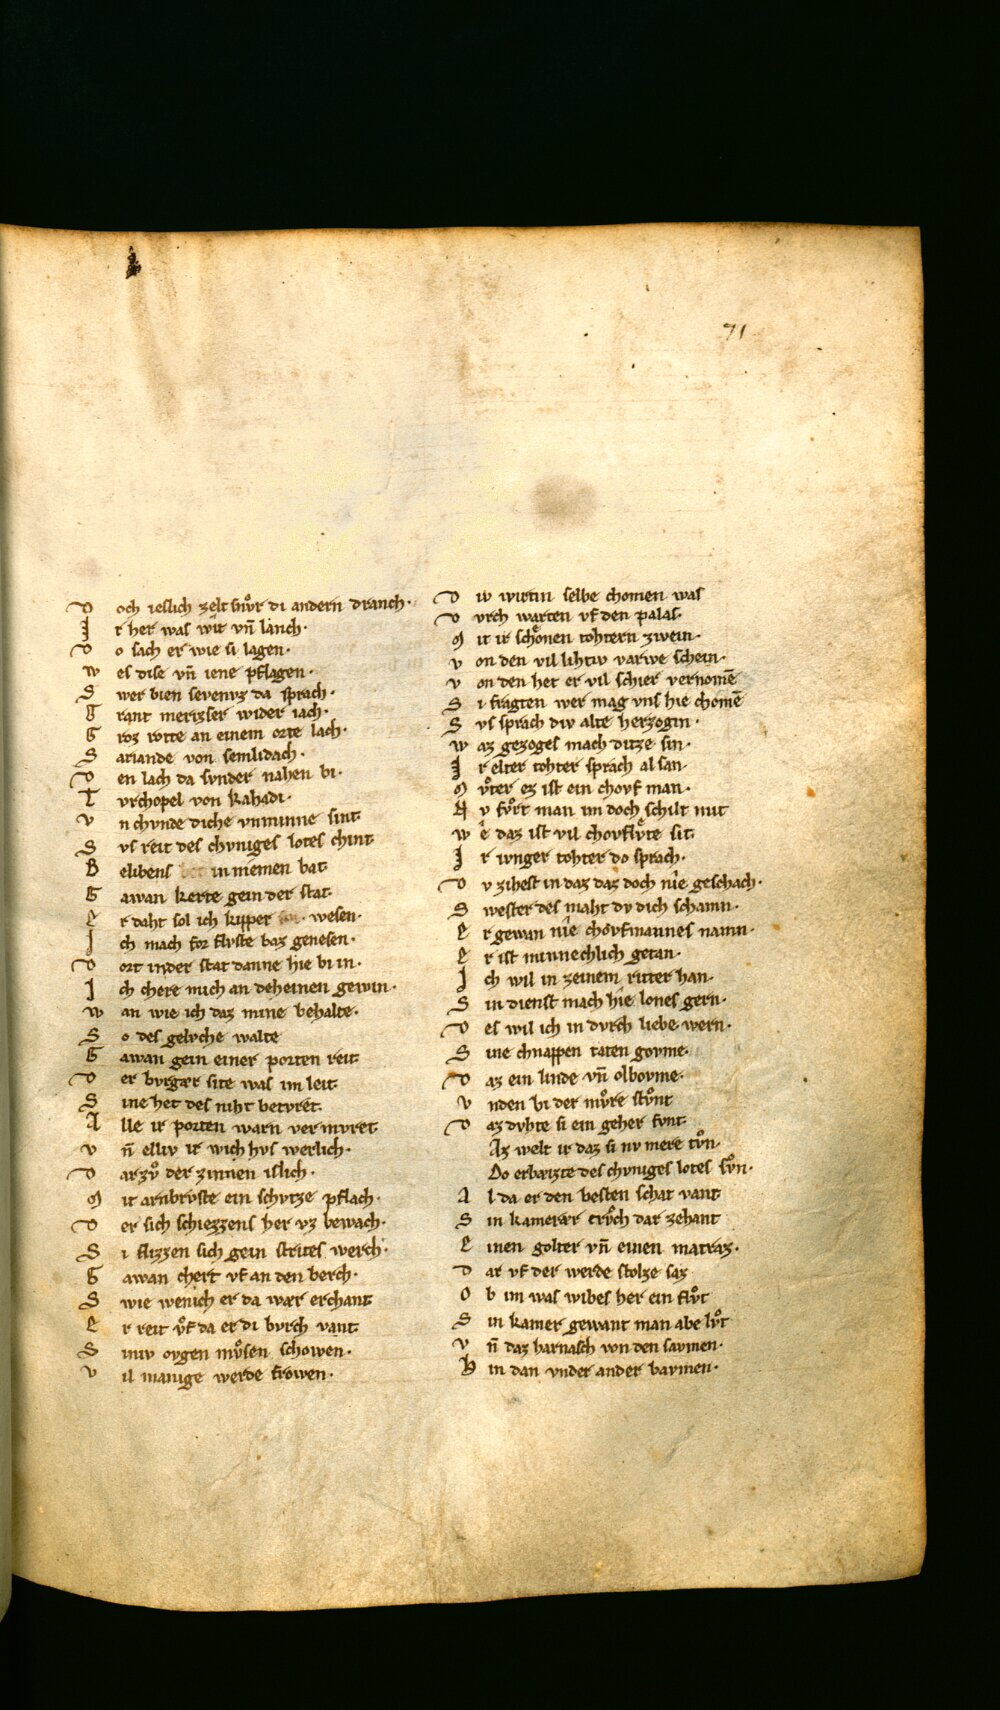 71
D och ieslich zelt snůr di andern dranch·
I r her was wit vn̄ lanch·
D o sach er wie si lagen·
W es dise vn̄ iene pflagen·
S wer bien sevenvz da sprach·
G rant merizser wider iach·
G roz rotte an einem orte lach·
S ariande von semlidach·
D en lach da svnder nahen bi·
T vrchopel von kahadi·
V n chvnde diche vnminne sint
S vs reit des chvniges lotes chint
B elibens in niemen bat
G awan kerte gein der stat
E r daht sol ich kipper wesen·
I ch mach for flvste baz genesen·
D ort inder stat danne hie bi in·
I ch chere mich an deheinen gewin·
W an wie ich daz mine behalte·
S o des gelvche walte
G awan gein einer porten reit
D er bvrgær site was im leit
S ine het des niht betvret
A lle ir porten warn vermvret
V n̄ elliv ir wichhvs werlich·
D arzů der zinnen islich·
M it armbrvste ein schvtze pflach·
D er sich schiezzens her vz bewach·
S i flizzen sich gein strites werch·
G awan chert vf an den berch·
S wie wenich er da wær erchant
E r reit ůf da er di bvrch vant
S iniv ovgen můsen schowen·
V il manige werde frowen·
D iv wirtin selbe chomen was
D vrch warten vf den palas·
M it ir schoͤnen tohtern zwein·
V on den vil lihtiv varwe schein·
V on den het er vil schier vernomē
S i fragten wer mag vns hie chomē
S vs sprach div alte herzogin·
W az gezoges mach ditze sin·
I r elter tohter sprach al san·
M ůter ez ist ein chovf man·
N v fůrt man im doch schilt mit
W ê daz ist vil chovflvͤte sit
I r ivnger tohter do sprach·
D v zihest in daz daz doch nie geschach·
S wester des maht dv dich schamn·
E r gewan nie chovfmannes namn·
E r ist minnechlich getan·
I ch wil in zeinem ritter han·
S in dienst mach hie lones gern·
D es wil ich in dvrch liebe wern·
S ine chnappen taten govme·
D az ein linde vn̄ olbovme·
V nden bi der mvͦre stvͦnt
D az dvhte si ein geher fvnt
Az welt ir daz si nv mere tvͦn·
Do erbeizte des chvniges lotes svͦn·
A l da er den besten schat vant
S in kamerær trvͦch dar zehant
E inen golter vn̄ einen matraz·
D ar vf der werde stolze saz
O b im was wibes her ein flvͦt
S in kamer gewant man abe lvͦt
V n̄ daz harnasch von den savmen·
H in dan vnder ander bavmen·